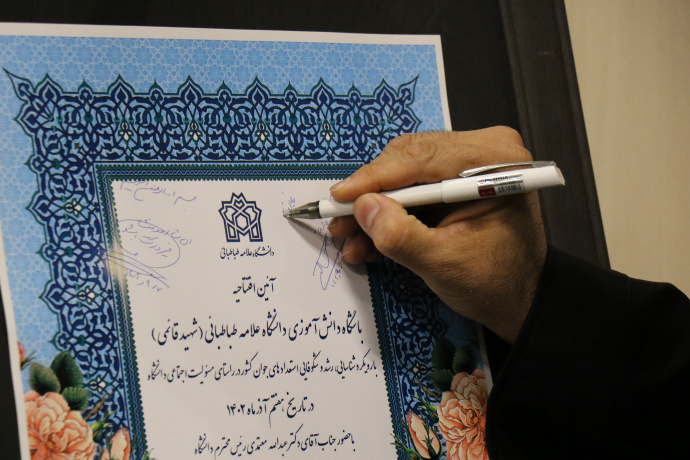 دانشگاه علامه طباطبائی
آئین افتتاحیه
باشگاه دانش آموزی دانشگاه علامه طباطبائی (شهید قائمی)
با رویکرد شناسایی، رشد و شکوفایی استعدادهای جوان کشور در راستای مسؤلیت اجتماعی دانشگاه
در تاریخ هفتم آذر ماه ۱۴۰۲
با حضور جناب آقای دکتر عبدالله معتمدی رئیس محترم دانشگاه